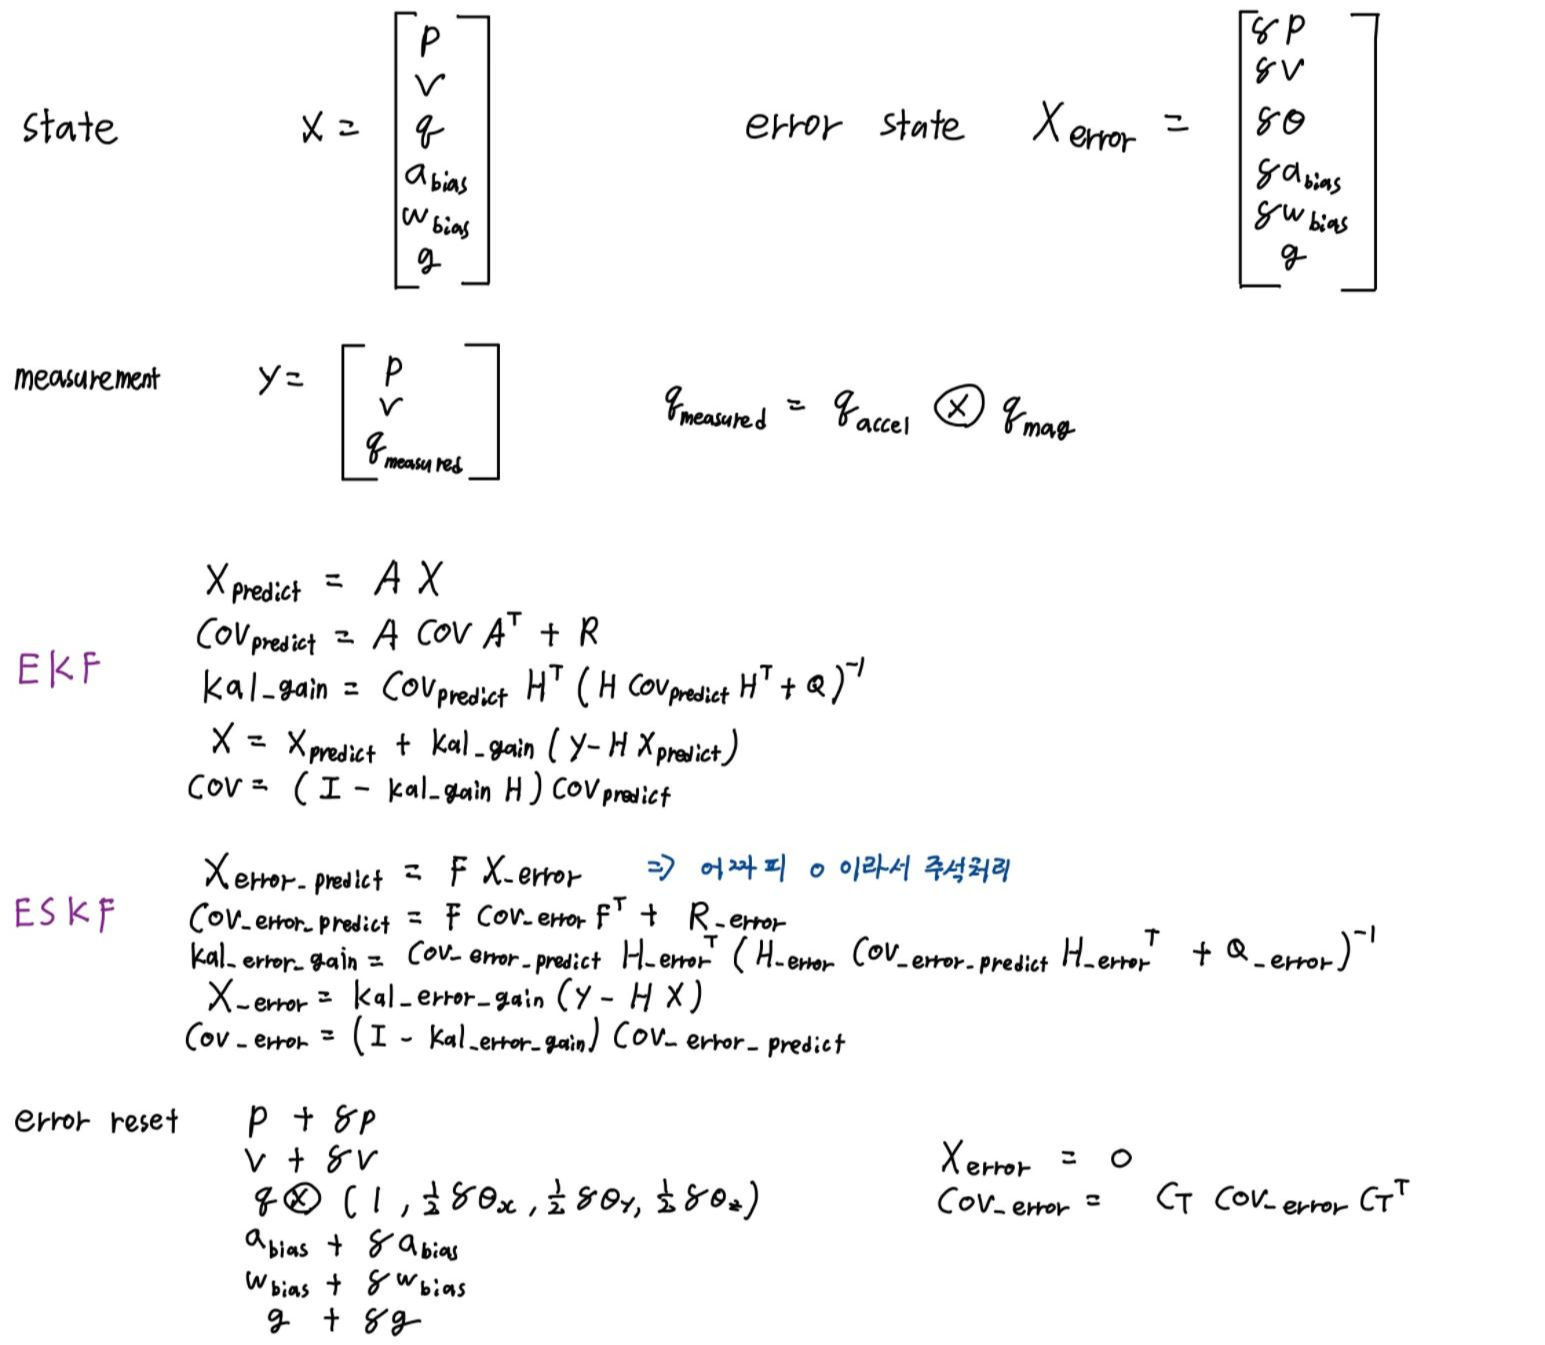 state X = [ p v q a_bias w_bias g ]
error state X_error = [ δp δv δθ δa_bias δw_bias g ]
measurement Y = [ p v q_measured ]
q_measured = q_accel ⊗ q_mag
EKF
X_predict = A X
Cov_predict = A COV A^T + R
kal_gain = Cov_predict H^T (H Cov_predict H^T + Q)^-1
X = X_predict + kal_gain (Y - H X_predict)
Cov = (I - kal_gain H) Cov_predict
ESKF
X_error_predict = F X_error ⇒ 어짜피 0 이라서 주석처리
Cov_error_predict = F Cov_error F^T + R_error
kal_error_gain = Cov_error_predict H_error^T (H_error Cov_error_predict H_error^T + Q_error)^-1
X_error = kal_error_gain (Y - H X)
Cov_error = (I - kal_error_gain) Cov_error_predict
error reset
p + δp
v + δv
q ⊗ (1, ½ δθx, ½ δθy, ½ δθz)
a_bias + δa_bias
w_bias + δw_bias
g + δg
X_error = 0
Cov_error = G Cov_error G^T